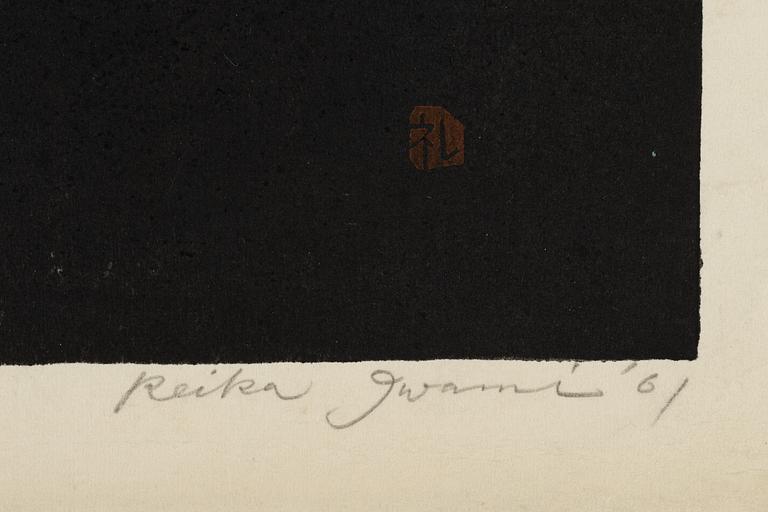 礼
Reika Iwami '61